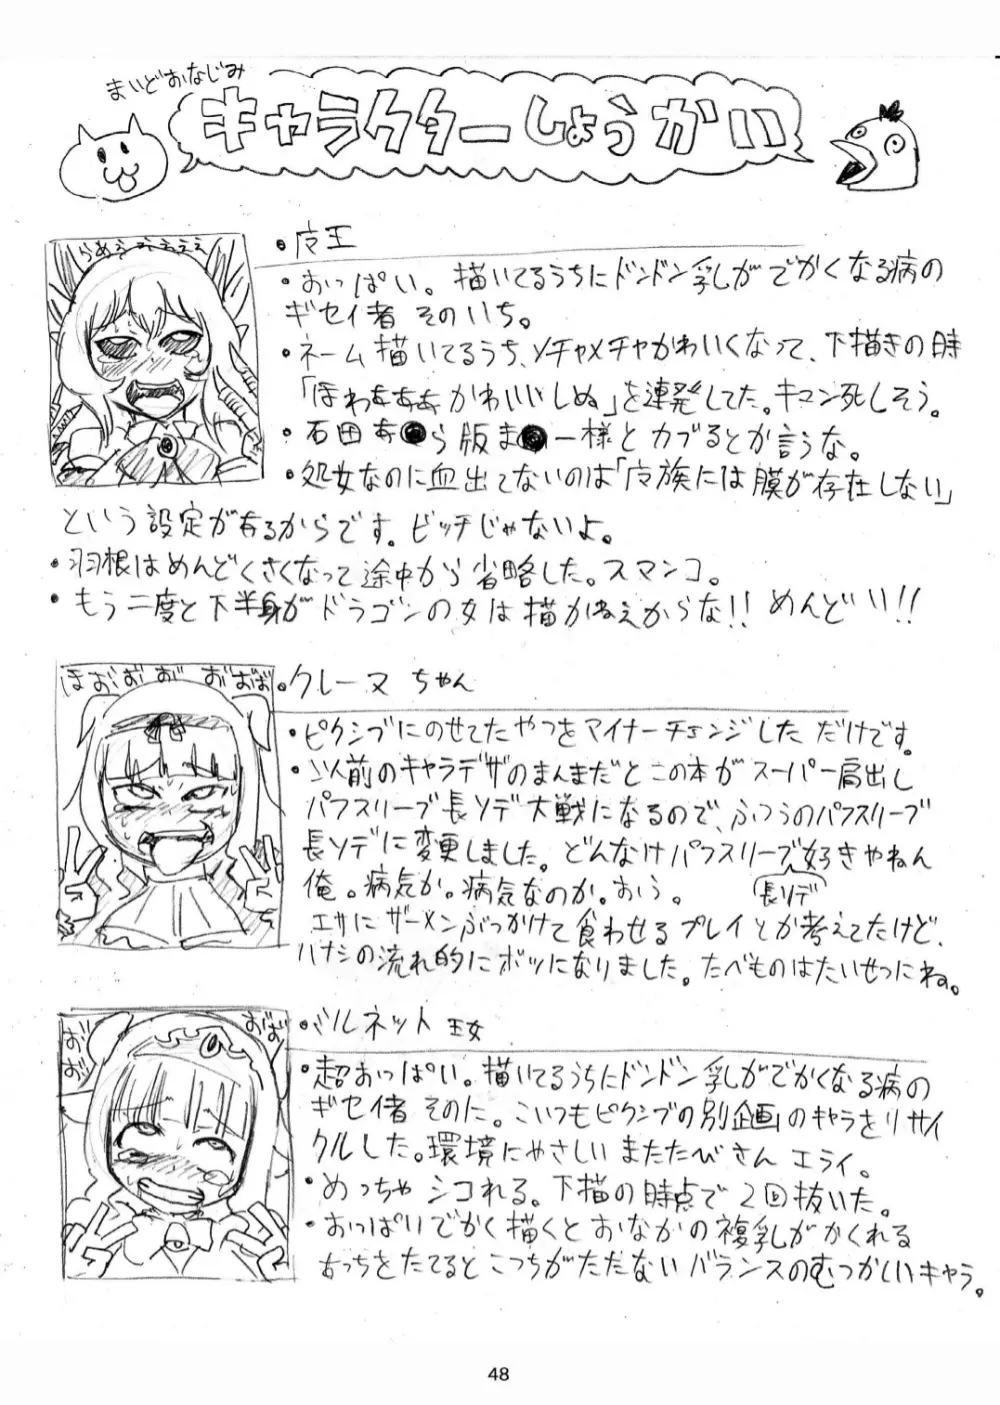 まいどおなじみ
キャラクターしょうかい
らめぇぇぇぇぇ
・皮王
・おっぱい。描いてるうちにドンドン乳がでかくなる病の
ギセイ者 そのいち。
・ネーム描いてるうち、メチャメチャかわいくなって、下描きの時
「ほわぁぁぁかわいいしぬ」を連発してた。キュン死しそう。
・石田あ●ら版ま●一様とカブるとか言うな。
・処女なのに血出てないのは「皮族には膜が存在しない」
という設定があるからです。ビッチじゃないよ。
・羽根はめんどくさくなって途中から省略した。スマンコ。
・もう二度と下半身がドラゴンの女は描かねえからな!! めんどい!!
ほおおお おおば
・クレーヌ ちゃん
・ピクシブにのせてたやつをマイナーチェンジしただけです。
・以前のキャラデザのまんまだとこの本がスーパー肩出し
パフスリーブ長ソデ大戦になるので、ふつうのパフスリーブ
長ソデに変更しました。どんなけパフスリーブ好きやねん
長ソデ
俺。病気か。病気なのか。おう。
エサにザーメンぶっかけて食わせるプレイとか考えてたけど、
ハナシの流れ的にボツになりました。たべものはたいせつにね。
おお おば
おお お
・バルネット 王女
・超おっぱい。描いてるうちにドンドン乳がでかくなる病の
ギセイ者 そのに。こいつもピクシブの別企画のキャラをリサイ
クルした。環境にやさしい またたびさん エライ。
・めっちゃシコれる。下描の時点で2回抜いた。
・おっぱいでかく描くとおなかの複乳がかくれる
あっちをたてるとこっちがたたないバランスのむつかしいキャラ。
48